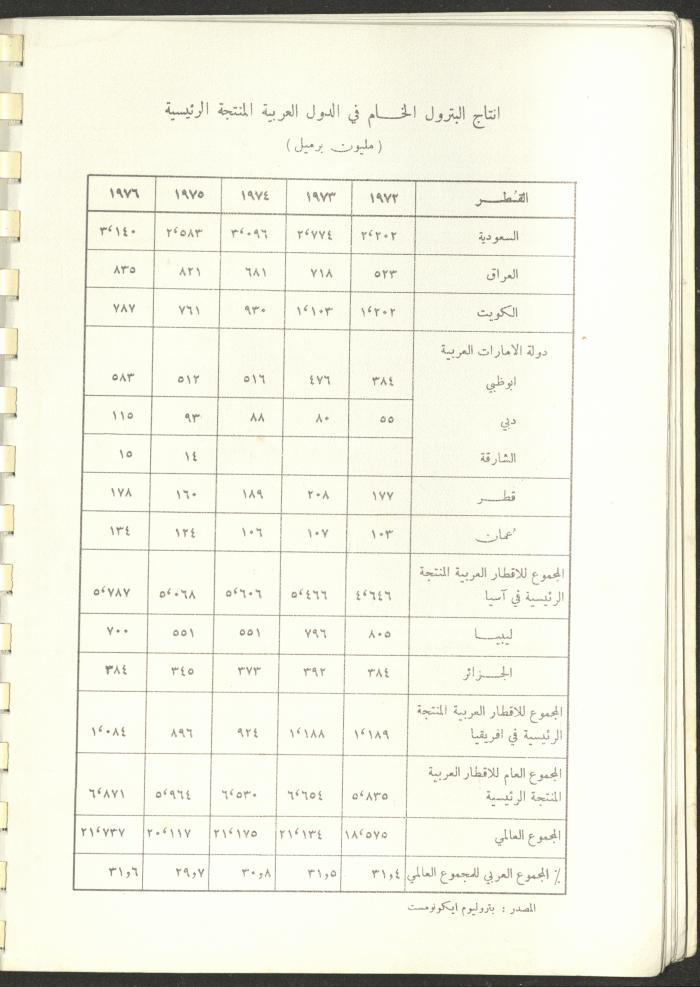 انتاج البترول الخـــام في الدول العربية المنتجة الرئيسية
( مليون برميل )
القـُطـــر ١٩٧٢ ١٩٧٣ ١٩٧٤ ١٩٧٥ ١٩٧٦
السعودية ٢٬٢٠٢ ٢٬٧٧٤ ٣٬٠٩٦ ٢٬٥٨٣ ٣٬١٤٠
العراق ٥٢٣ ٧١٨ ٦٨١ ٨٢١ ٨٣٥
الكويت ١٬٢٠٢ ١٬١٠٣ ٩٣٠ ٧٦١ ٧٨٧
دولة الامارات العربية
ابوظبي ٣٨٤ ٤٧٦ ٥١٦ ٥١٢ ٥٨٣
دبي ٥٥ ٨٠ ٨٨ ٩٣ ١١٥
الشارقة ١٤ ١٥
قطر ١٧٧ ٢٠٨ ١٨٩ ١٦٠ ١٧٨
عُمان ١٠٣ ١٠٧ ١٠٦ ١٢٤ ١٣٤
المجموع للاقطار العربية المنتجة
الرئيسية في آسيا ٤٬٦٤٦ ٥٬٤٦٦ ٥٬٦٠٦ ٥٬٠٦٨ ٥٬٧٨٧
ليبيــا ٨٠٥ ٧٩٦ ٥٥١ ٥٥١ ٧٠٠
الجــزائر ٣٨٤ ٣٩٢ ٣٧٣ ٣٤٥ ٣٨٤
المجموع للاقطار العربية المنتجة
الرئيسية في افريقيا ١٬١٨٩ ١٬١٨٨ ٩٢٤ ٨٩٦ ١٬٠٨٤
المجموع العام للاقطار العربية
المنتجة الرئيسية ٥٬٨٣٥ ٦٬٦٥٤ ٦٬٥٣٠ ٥٬٩٦٤ ٦٬٨٧١
المجموع العالمي ١٨٬٥٧٥ ٢١٬١٣٤ ٢١٬١٧٥ ٢٠٬١١٧ ٢١٬٧٣٧
٪ المجموع العربي للمجموع العالمي ٣١٫٤ ٣١٫٥ ٣٠٫٨ ٢٩٫٧ ٣١٫٦
المصدر : بتروليوم ايكونومست